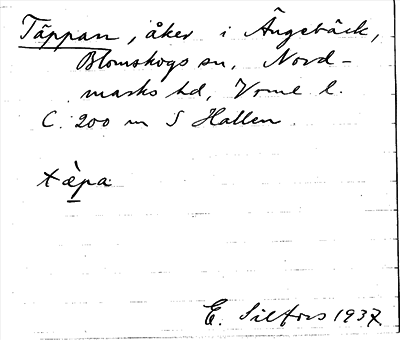 Täppan, åker i Ängebäck,
Blomskogs sn, Nord-
marks hd, Vrml l.
C. 200 m S Hallen
tæ̀pa
E. Silfors 1937